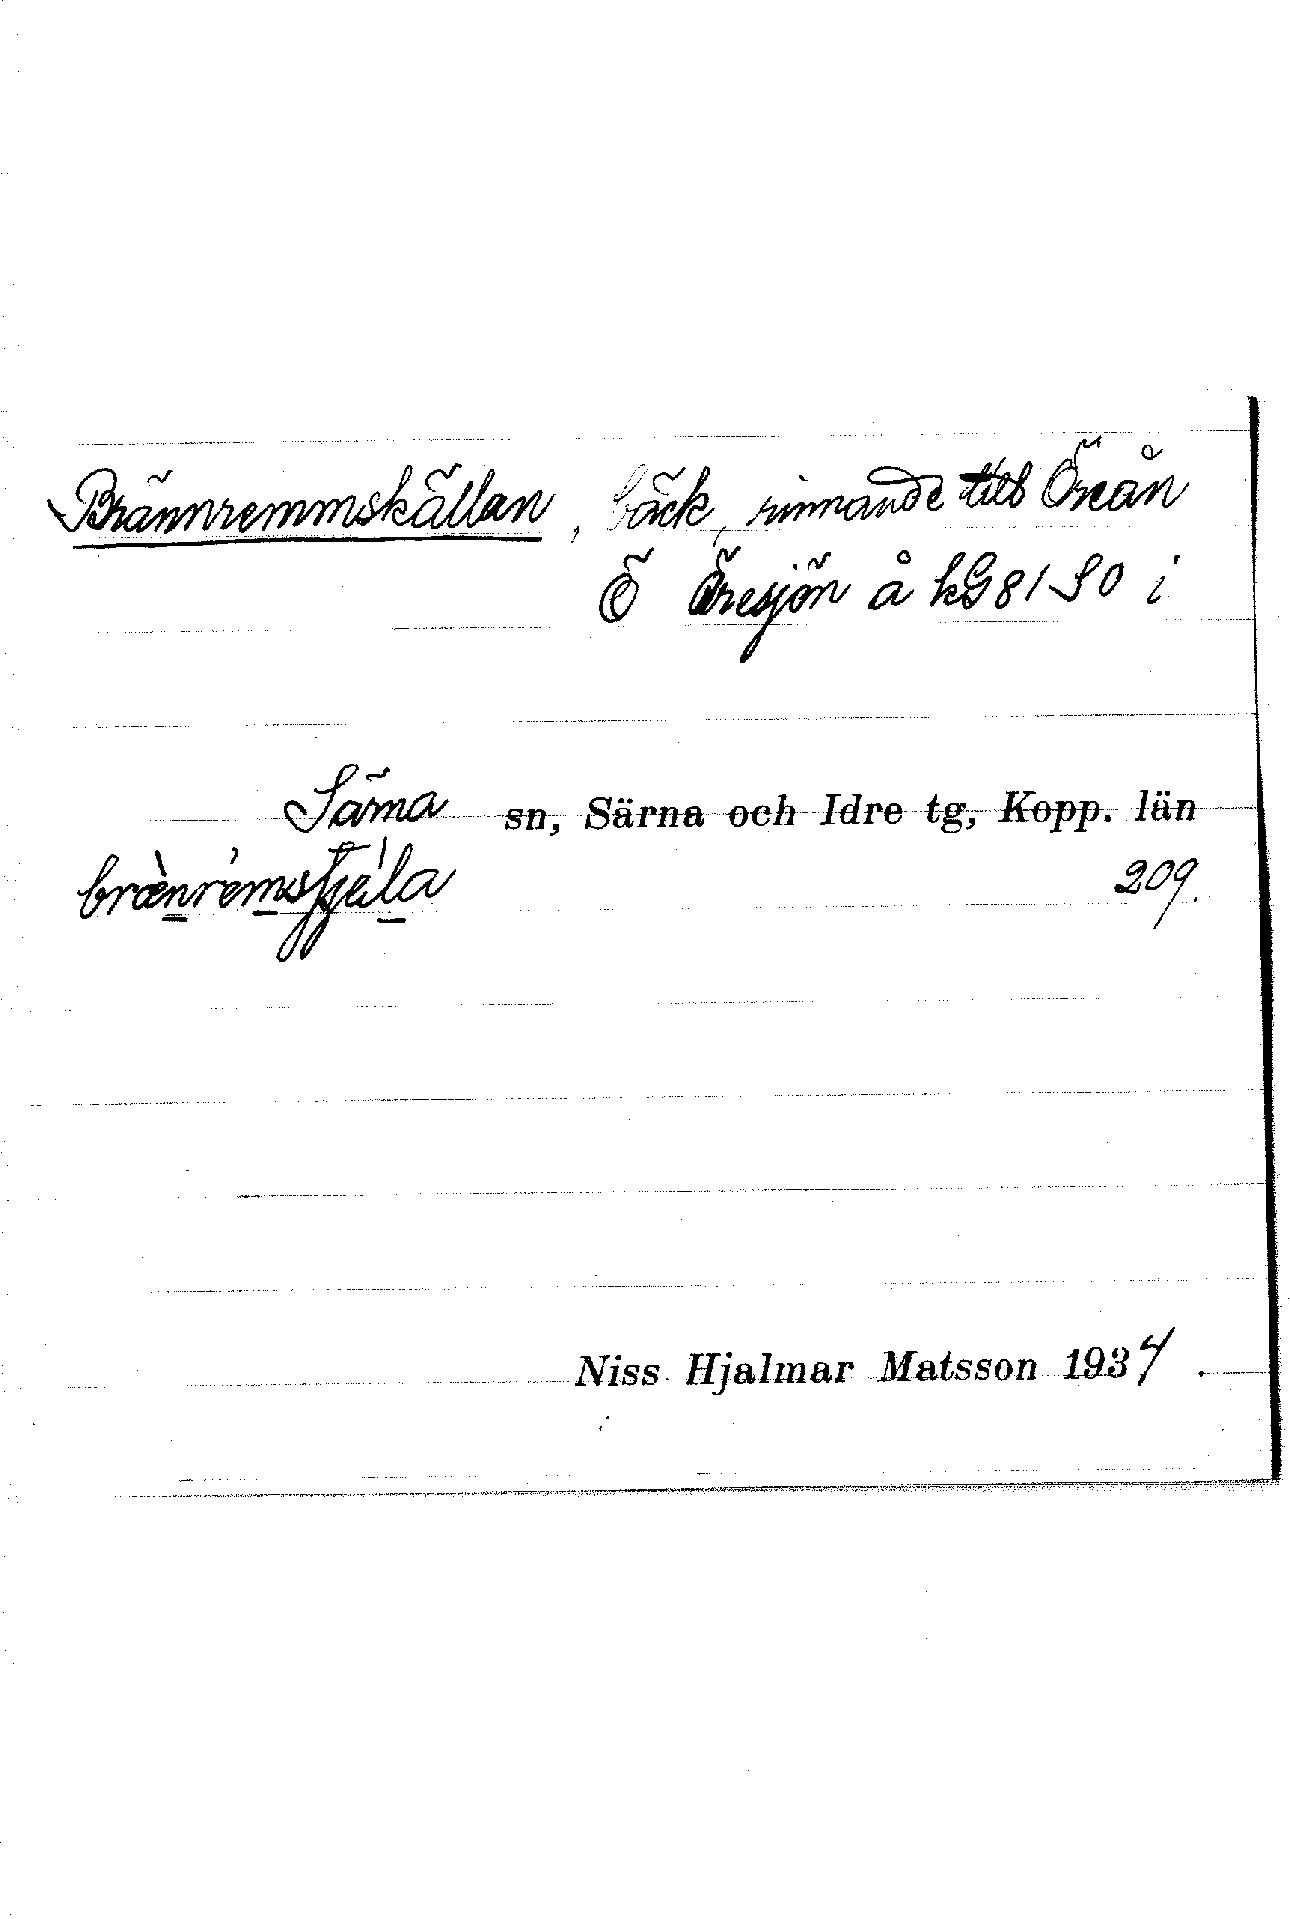 Brännremmskällan, bäck, rinnande till Öreån
Ö Öresjön å kG 81 SO i
Särna sn, Särna och Idre tg, Kopp. län
209.
Niss Hjalmar Matsson 1934.